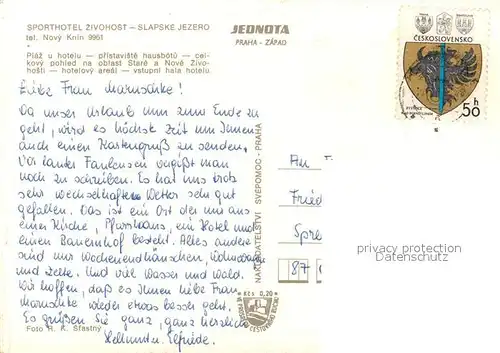 SPORTHOTEL ŽIVOHOŠŤ – SLAPSKÉ JEZERO
tel. Nový Knín 9951
Pláž u hotelu — přístaviště hausbótů — cel-
kový pohled na oblast Staré a Nové Živo-
hošti — hotelový areál — vstupní hala hotelu.
JEDNOTA
PRAHA - ZÁPAD
ČESKOSLOVENSKO
50 h
Liebe Frau Maruschke!
Da unser Urlaub nun zum Ende zu
geht, wird es höchst Zeit um Ihnen
auch einen Kartengruß zu senden.
Vor lauter Faulensen vergißt man
noch zu schreiben. Es hat uns trotz
sehr wechselhaften Wetter sehr gut
gefallen. Das ist ein Ort der nur aus
einer Kirche, Pfarrhaus, ein Hotel und
einen Bauernhof besteht. Alles andere
sind nur Wochenendhäuschen, Wohnwagen
und Zelte. Und viel Wasser und Wald.
Wir hoffen, daß es Ihnen liebe Frau
Maruschke wieder etwas besser geht.
Es grüßen Sie ganz, ganz herzlich
Hellmut u. Elfriede.
Foto R. A. Šťastný
NAKLADATELSTVÍ SVÉPOMOC - PRAHA
Kčs 0,20
An
Fried
Spre
87
privacy protection
Datenschutz